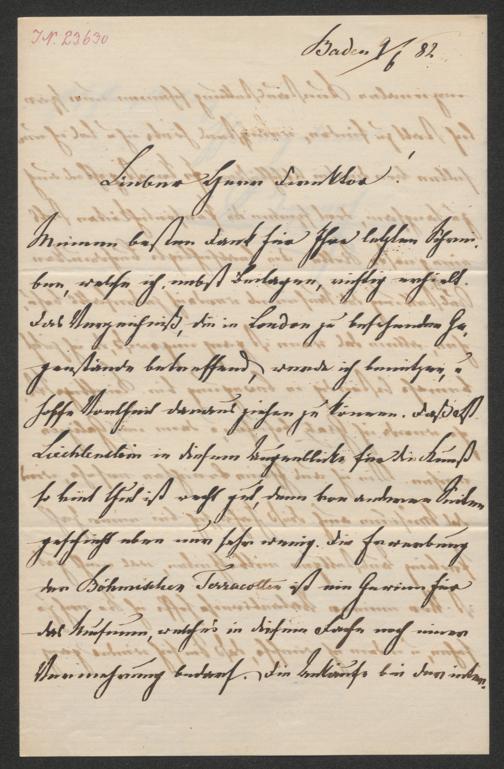 J.N. 23630
Baden 9/6 82
Lieber Herr Direktor!
Meinen besten Dank für Ihre letzten Schrei-
ben, welche ich, nebst Beilagen, richtig erhielt.
Das Verzeichniß, die in London zu besehenden Ge-
genstände betreffend, werde ich benützen, u
hoffe Vortheil daraus ziehen zu können. Daß Fst.
Liechtenstein in diesem Augenblicke für die Kunst
so viel thut ist recht gut, denn von anderen Seiten
geschieht eben nur sehr wenig. Die Erwerbung
der Böhmischen Terracotten ist ein Gewinn für
das Museum, welches in diesem Fache noch immer
Vermehrung bedarf. Die Ankäufe bei der inter-